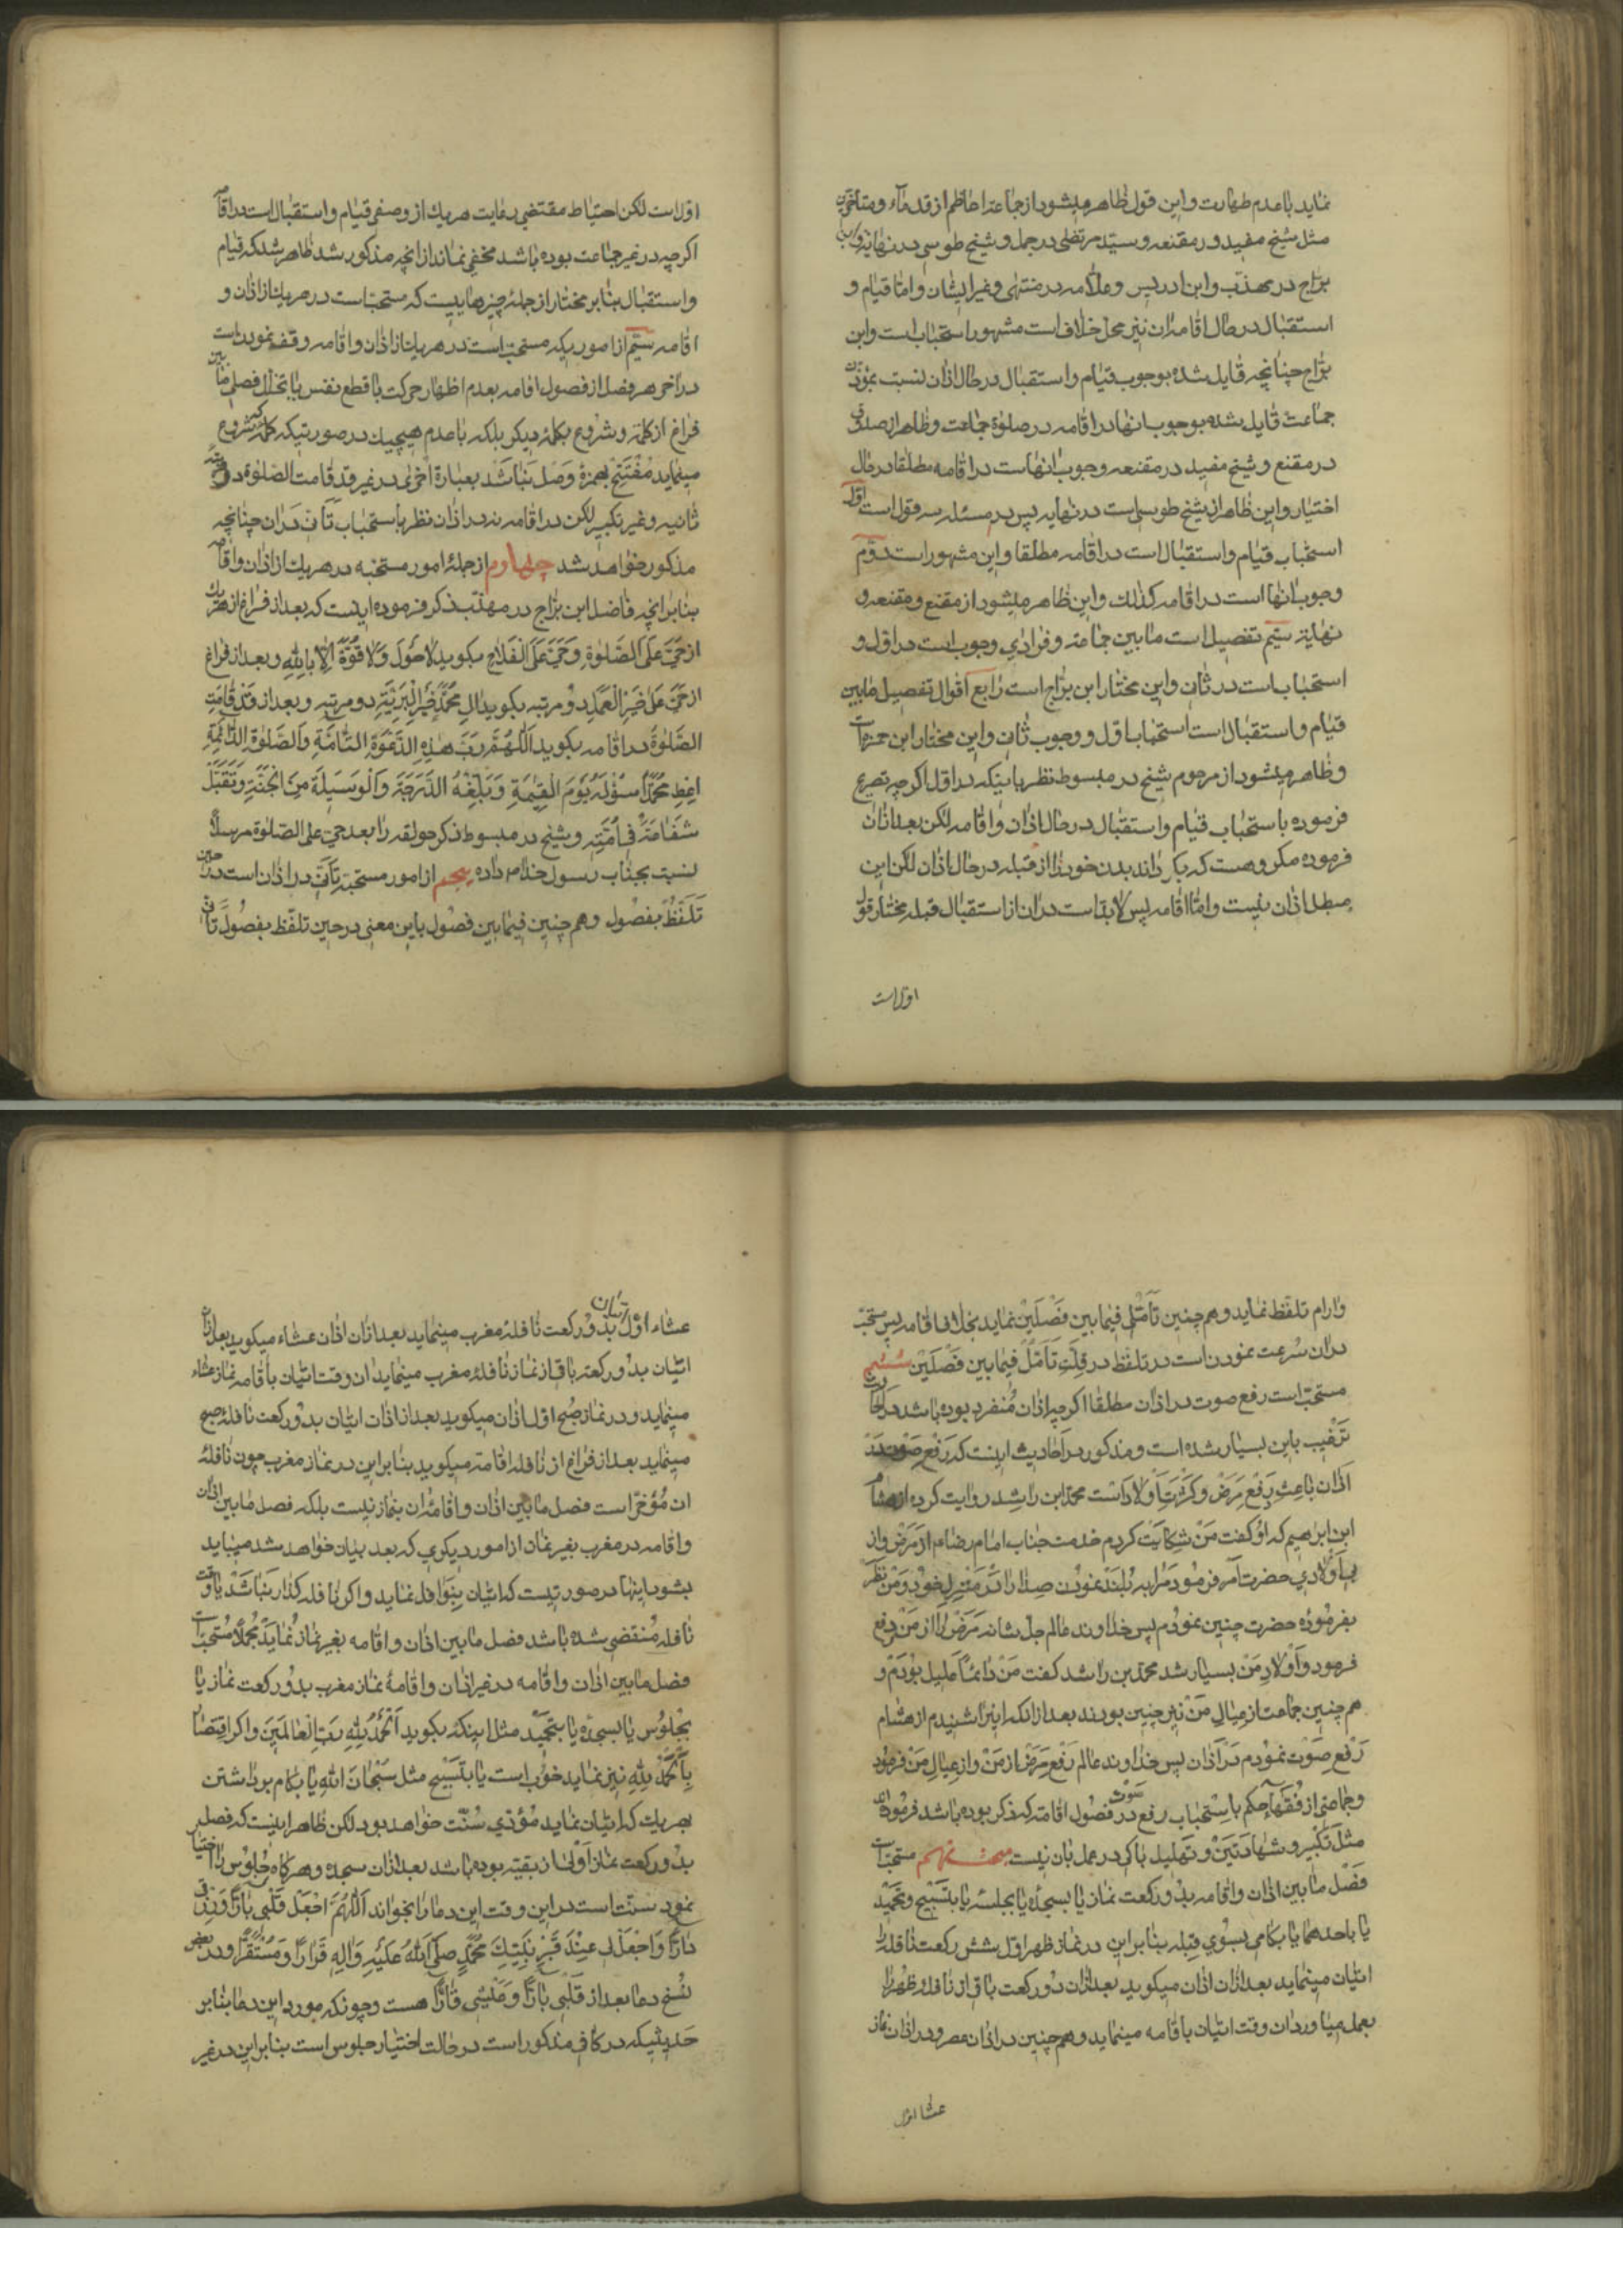 نماید با عدم طهارت و این قول ظاهر میشود از جماعتی اعاظم از قدماء و متاخرین
مثل شیخ مفید در مقنعه و سید مرتضی در جمل و شیخ طوسی در نهایة و ابن
براج در مهذب و ابن ادریس و علامه در منتهی و غیر ایشان و اما قیام و
استقبال در حال اقامه ان نیز محل خلاف است مشهور استحباب است و ابن
براج چنانچه قایل شده بوجوب قیام و استقبال در حال اذان نسبت بمؤذن
جماعت قایل شده بوجوب انها در اقامه در صلوة جماعت و ظاهر از صدوق
در مقنع و شیخ مفید در مقنعه وجوب انهاست در اقامه مطلقا در حال
اختیار و این ظاهر از شیخ طوسی است در نهایه پس در مسئله سه قول است اول
استحباب قیام و استقبال است در اقامه مطلقا و این مشهور است دوم
وجوب انها است در اقامه کذلك و این ظاهر میشود از مقنع و مقنعه و
نهایة سیم تفصیل است ما بین جماعة و فرادی وجوب است در اول و
استحباب است در ثانی و این مختار ابن براج است رابع اقوال تفصیل مابین
قیام و استقبال است استحباب اول و وجوب ثانی و این مختار ابن حمزه است
و ظاهر میشود از مرحوم شیخ در مبسوط نظر باینکه در اول اکرچه تصریح
فرموده باستحباب قیام و استقبال در حال اذان و اقامه لکن بعد از ان
فرموده مکروهست که بکرداند بدن خود را از قبله در حال اذان لکن این
مبطل اذان نیست و اما اقامه پس لابد است در ان از استقبال قبله مختار قول
اول است
اول است لکن احتیاط مقتضی رعایت هر یك از وصفی قیام و استقبال است در اقامه
اکرچه در غیر جماعت بوده باشد مخفی نماند از انچه مذکور شد ظاهر شد که قیام
و استقبال بنابر مختار از جمله چیزهاییست که مستحب است در هر یك از اذان و
اقامه سیم از اموریکه مستحب است در هر یك از اذان و اقامه وقف نمودن است
در اخر هر فصل از فصول اقامه بعدم اظهار حرکت با قطع نفس یا تخلل فصلی ما بین
فراغ از کلمة و شروع بکلمه دیکر بلکه با عدم هیچیك در صورتیکه کلمه که شروع
مینماید مفتتح بهمزه وصل نباشد بعبارة اخری در غیر قد قامت الصلوة در
ثانیه و غیر تکبیر لکن در اقامه نه در اذان نظر باستحباب تأنی در ان چنانچه
مذکور خواهد شد چهارم از جمله امور مستحبه در هر یك از اذان و اقامه
بنابر انچه فاضل ابن براج در مهذب ذکر فرموده اینست که بعد از فراغ از هر یك
از حی علی الصلوة و حی علی الفلاح بکوید لا حول و لا قوة الا بالله و بعد از فراغ
از حی علی خیر العمل دو مرتبه بکوید ال محمد خیر البریة دو مرتبه و بعد از قد قامت
الصلوة در اقامه بکوید اللهم رب هذه الدعوة التامة و الصلوة الدائمة
اعط محمدا سؤله یوم القیمة و بلغه الدرجة و الوسیلة من الجنة و تقبل
شفاعته فی امته و شیخ در مبسوط ذکر حولقه را بعد حی علی الصلوة مرسلا
نسبت بجناب رسول خدا ص داده پنجم از امور مستحبه تأنی در اذان است در حین
تلفظ بفصول و هم چنین فیما بین فصول باین معنی در حین تلفظ بفصول تأنی
و ارام تلفظ نماید و هم چنین تأملی فیما بین فصلین نماید بخلاف اقامه پس مستحب
در ان سرعت نمودن است در تلفظ در قلت تأمل فیما بین فصلین ششم
مستحب است رفع صوت در اذان مطلقا اکرچه اذان منفرد بوده باشد در
ترغیب باین بسیار شده است و مذکور در احادیث اینست که رفع صوت در
اذان باعث رفع مرض و کثرت اولاد است محمد ابن راشد روایت کرده از هشام
ابن ابرهیم که او کفت من شکایت کردم خدمت جناب امام رضا ع از مرض و از
بی اولادی حضرت امر فرمود مرا به بلند نمودن صدا را در منزل خود و من نظر
بفرموده حضرت چنین نمودم پس خداوند عالم جل شانه مرض را از من رفع
فرمود و اولاد من بسیار شد محمد بن راشد کفت من دائما علیل بودم و
هم چنین جماعت از عیال من نیز چنین بودند بعد از انکه اینرا شنیدم از هشام
رفع صوت نمودم در اذان پس خداوند عالم رفع مرض از من و از عیال من فرمود
و جماعتی از فقها حکم باستحباب رفع صوت در فصول اقامه که ذکر بوده باشد فرموده اند
مثل تکبیر و شهادتین و تهلیل باکی در عمل بان نیست مستحب است
فصل ما بین اذان و اقامه بدو رکعت نماز یا بسجده یا بجلسه یا بتسبیح و تحمید
یا باحدهما یا بکامی بسوی قبله بنابر این در نماز ظهر اول شش رکعت نافله را
اتیان مینماید بعد از ان اذان میکوید بعد از ان دو رکعت باقی از نافله ظهر را
بعمل میاورد ان وقت اتیان باقامه مینماید و هم چنین در اذان عصر و در اذان نماز
عشا اول
عشاء اول اتیان بدو رکعت نافله مغرب مینماید بعد از ان اذان عشاء میکوید بعد از ان
اتیان بدو رکعت باقی از نماز نافله مغرب مینماید ان وقت اتیان باقامه نماز عشاء
مینماید و در نماز صبح اول اذان میکوید بعد از اذان اتیان بدو رکعت نافله صبح
مینماید بعد از فراغ از نافله اقامه میکوید بنابر این در نماز مغرب چون نافله
ان مؤخر است فصل ما بین اذان و اقامه ان بنماز نیست بلکه فصل ما بین اذان
و اقامه در مغرب بغیر نماز از امور دیکری که بعد بیان خواهد شد میباید
بشود اینها در صورتیست که اتیان بنوافل نماید و اکر نافله کذار نباشد یا وقت
نافله منقضی شده باشد فصل ما بین اذان و اقامه بغیر نماز نماید مجملا مستحب است
فصل ما بین اذان و اقامه در غیر اذان و اقامه نماز مغرب بدو رکعت نماز یا
بجلوس یا بسجده یا بتحمید مثل اینکه بکوید الحمد لله رب العالمین و اکر اقتصار
بالحمد لله نیز نماید خوب است یا بتسبیح مثل سبحان الله یا بکام برداشتن
بهر یك که اتیان نماید مؤدی سنت خواهد بود لکن ظاهر اینست که فصل
بدو رکعت نماز اولی از بقیه بوده باشد بعد از ان سجده و هر کاه جلوس را اختیار
نمود سنت است در این وقت این دعا را بخواند اللهم اجعل قلبی بارا و رزقی
دارا و اجعل لی عند قبر نبیك محمد صلی الله علیه و اله قرارا و مستقرا و در بعض
نسخ دعا بعد از قلبی بارا و عیشی قارا هست و چونکه مورد این دعا بنابر
حدیثیکه در کافی مذکور است در حالت اختیار جلوس است بنابر این در غیر